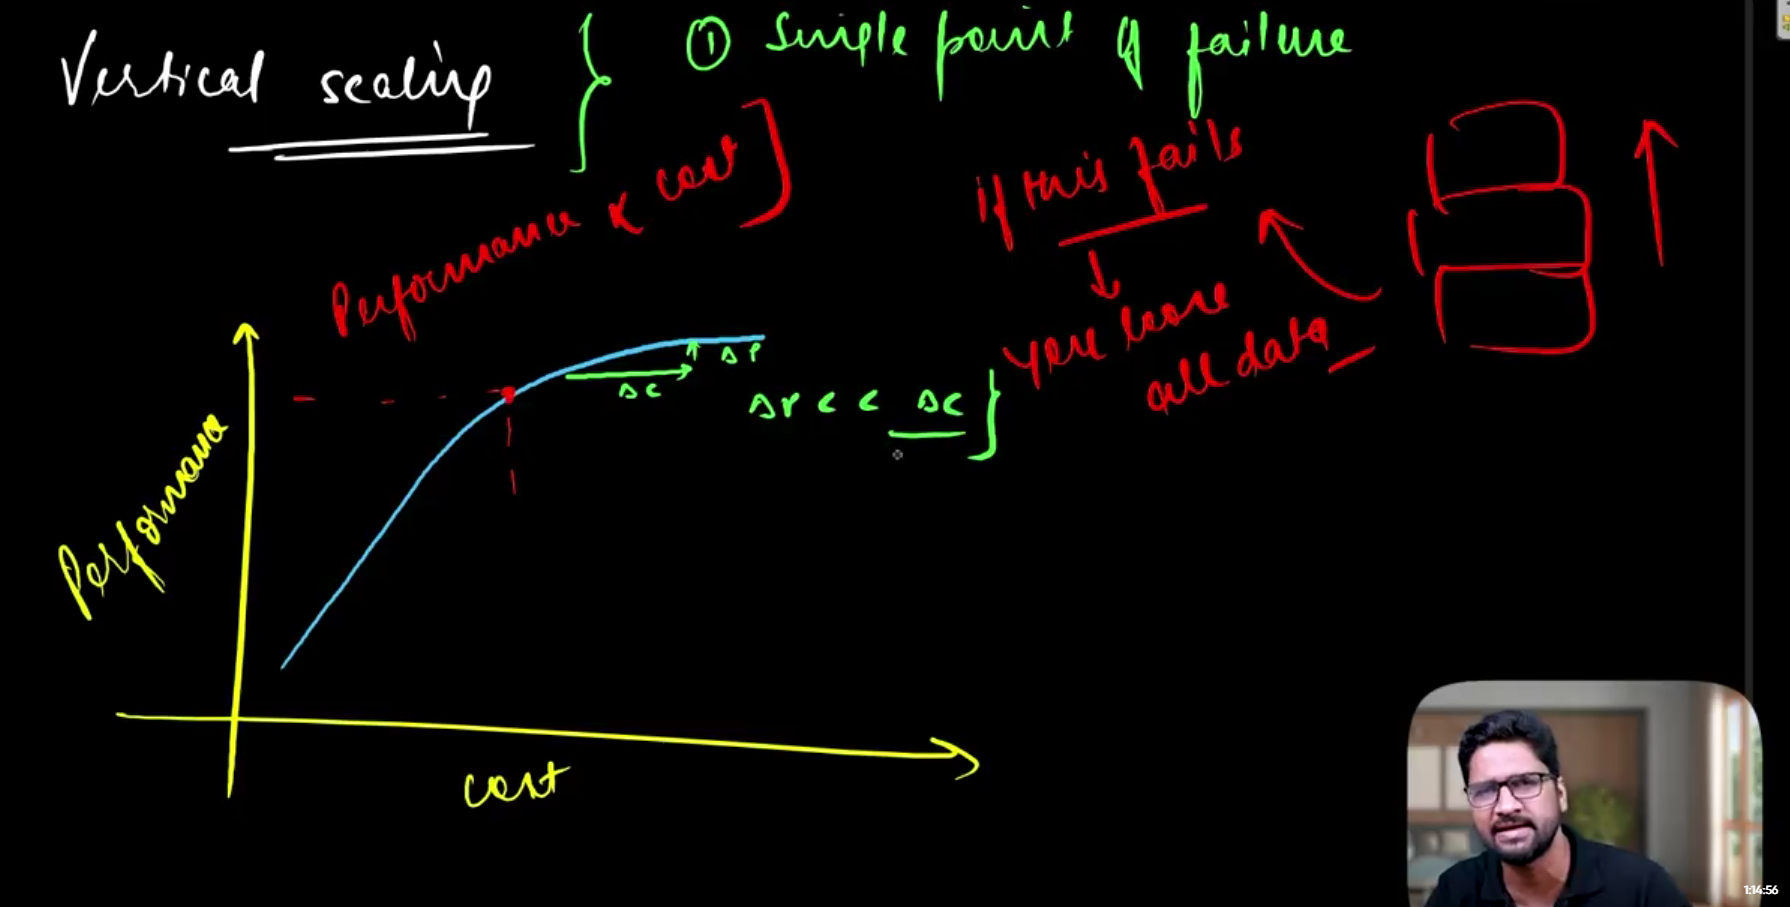 Vertical scaling
① Single point of failure
Performance ∝ cost
if this fails
↓
you loose
all data
ΔP
ΔC
ΔP << ΔC
Performance
cost
1:14:56